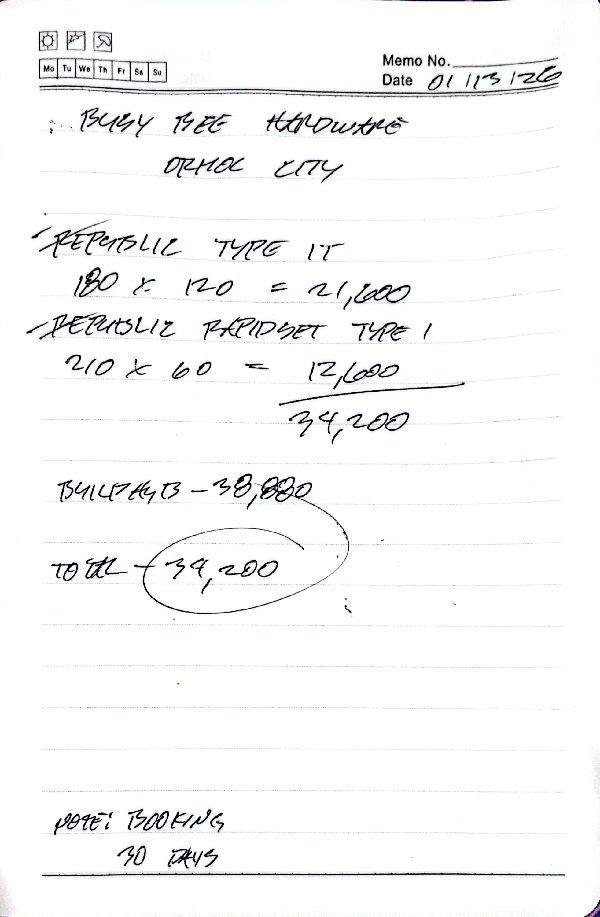 Mo Tu We Th Fr Sa Su
Memo No.
Date 01/13/26
BUSY BEE HARDWARE
ORMOC CITY
REPUBLIC TYPE 1T
180 x 120 = 21,600
REPUBLIC RAPIDSET TYPE 1
210 x 60 = 12,600
34,200
BUILDHUB - 38,880
TOTAL - 34,200
NOTE: BOOKING
30 DAYS